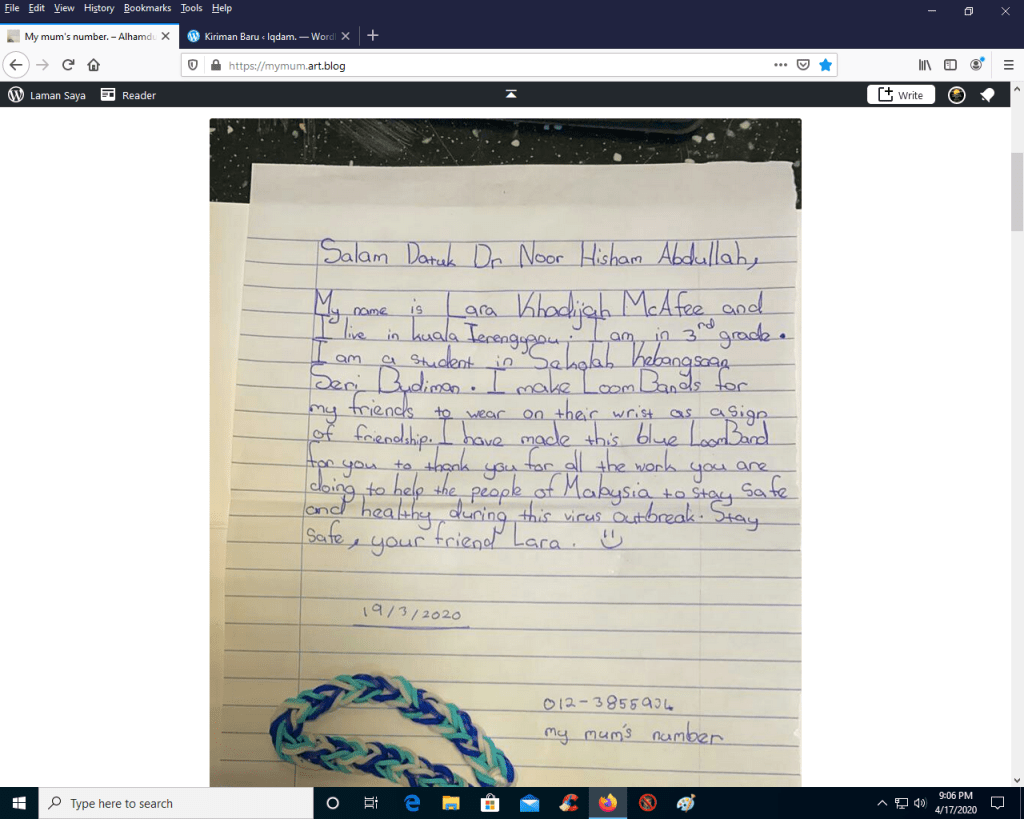 File Edit View History Bookmarks Tools Help
My mum's number. – Alhamdu
Kiriman Baru ‹ Iqdam. — Word
https://mymum.art.blog
Laman Saya Reader Write
Salam Datuk Dr Noor Hisham Abdullah,
My name is Lara Khadijah McAfee and
I live in kuala Terengganu. I am in 3rd grade.
I am a student in Sekolah Kebangsaan
Seri Budiman. I make Loom Bands for
my friends to wear on their wrist as a sign
of friendship. I have made this blue LoomBand
for you to thank you for all the work you are
doing to help the people of Malaysia to stay safe
and healthy during this virus outbreak. Stay
safe, your friend Lara.
19/3/2020
012-3855934
my mum's number
Type here to search
9:06 PM
4/17/2020